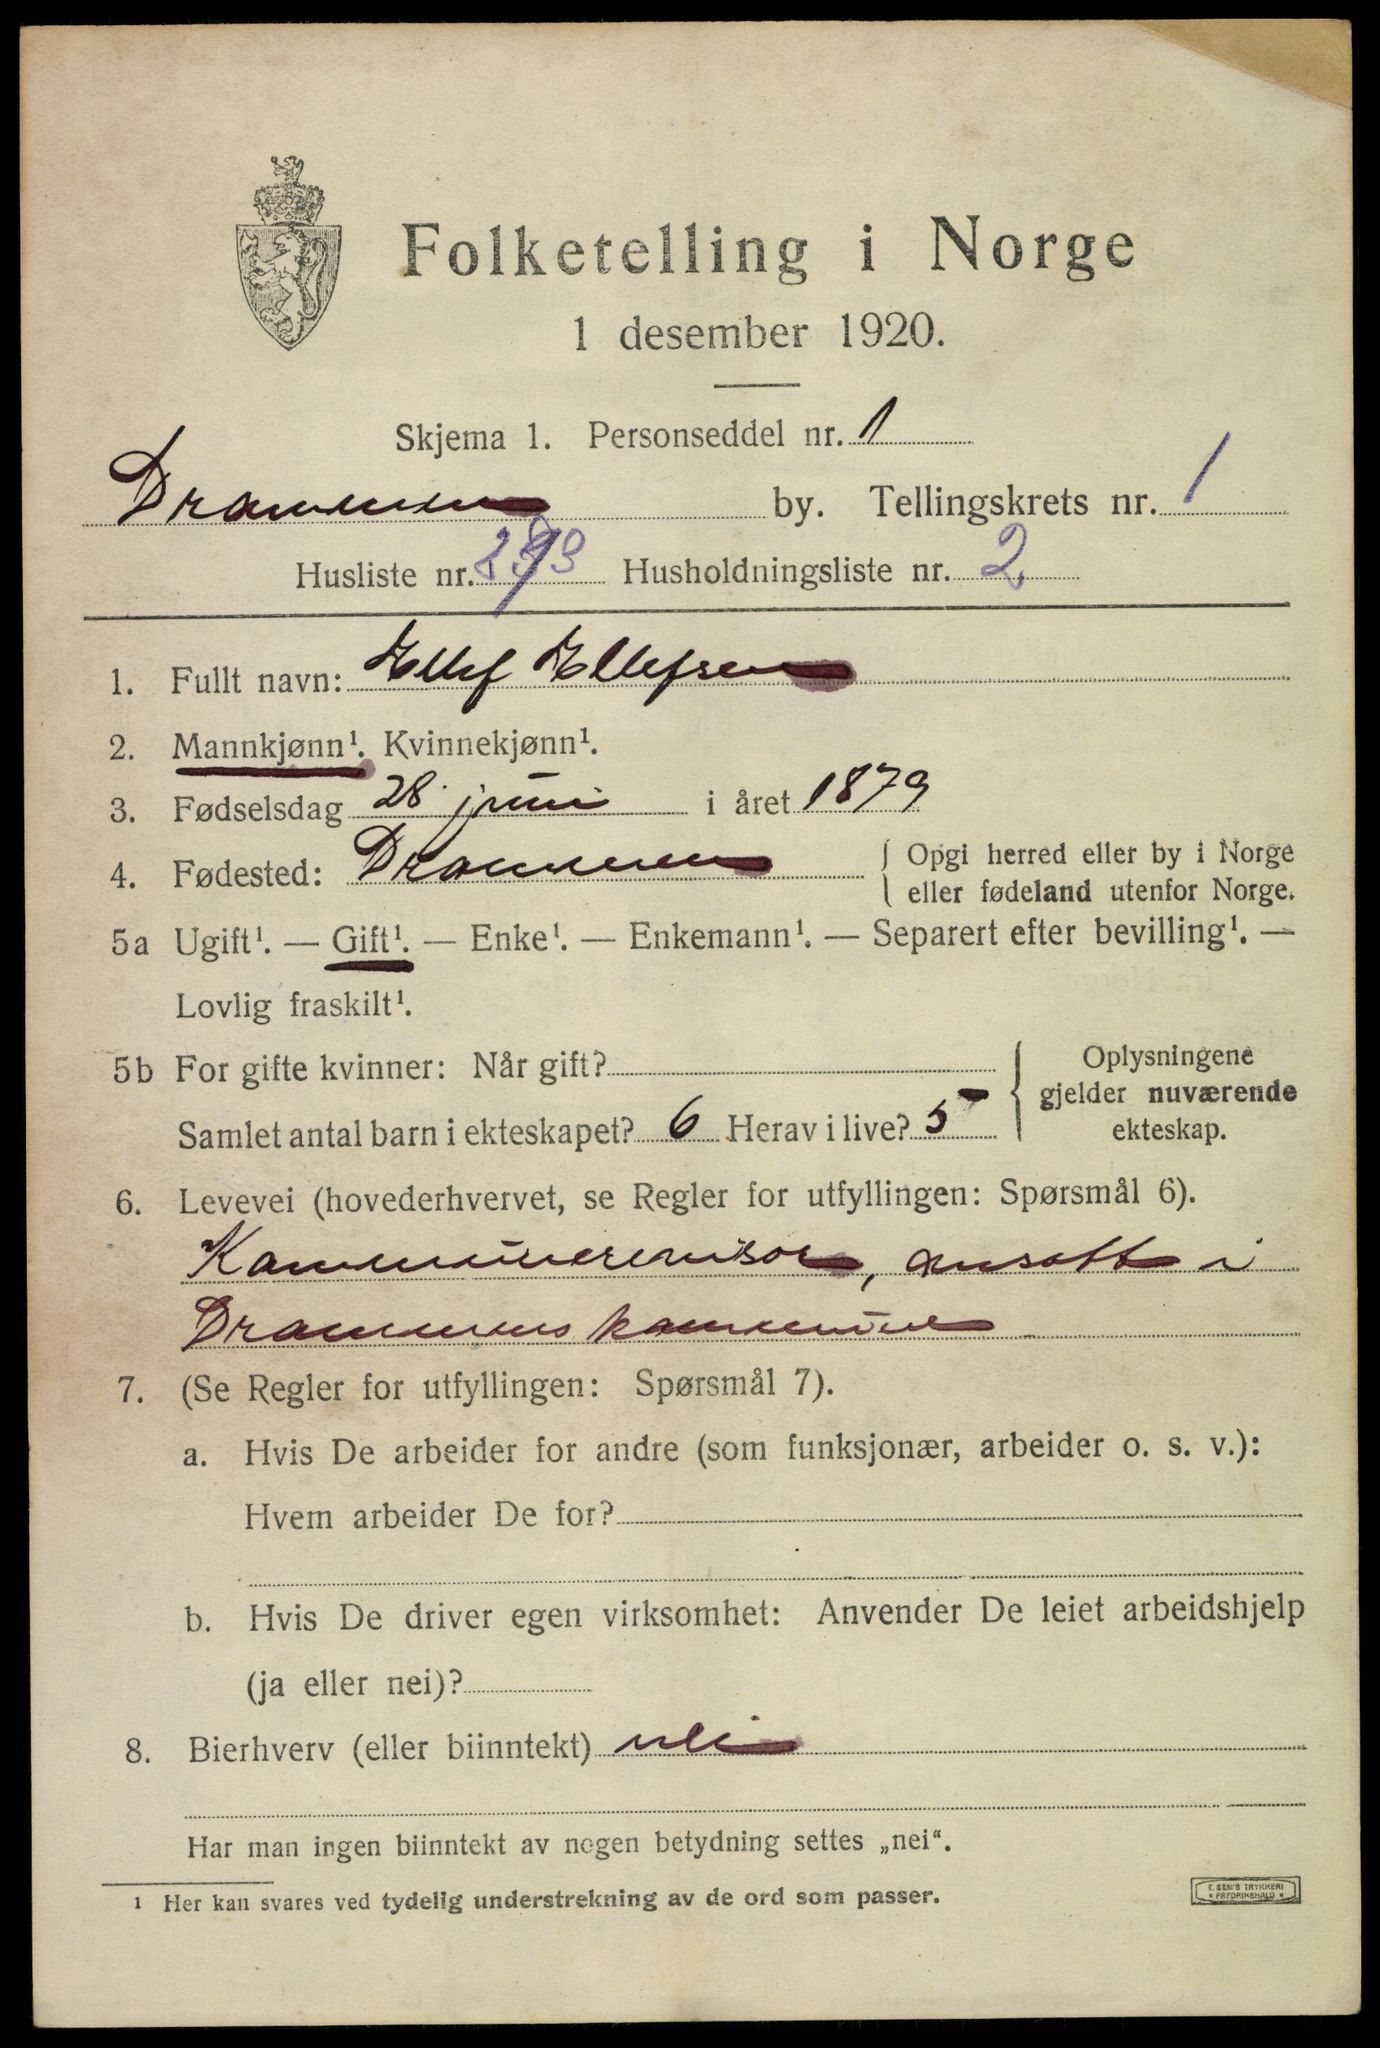 Folketelling i Norge
1 desember 1920.
Skjema 1. Personseddel nr. 1
Drammen by. Tellingskrets nr. 1
Husliste nr. Husholdningsliste nr. 2
1. Fullt navn: Ellef Ellefsen
2. Mannkjønn¹. Kvinnekjønn¹.
3. Fødselsdag 28. juni i året 1879
4. Fødested: Drammen { Opgi herred eller by i Norge
eller fødeland utenfor Norge.
5a Ugift¹. — Gift¹. — Enke¹. — Enkemann¹. — Separert efter bevilling¹. —
Lovlig fraskilt¹.
5b For gifte kvinner: Når gift?
Samlet antal barn i ekteskapet? 6 Herav i live? 5
{ Oplysningene
gjelder nuværende
ekteskap.
6. Levevei (hovederhvervet, se Regler for utfyllingen: Spørsmål 6).
Kommunerevisor, ansatt i
Drammens kommune
7. (Se Regler for utfyllingen: Spørsmål 7).
a. Hvis De arbeider for andre (som funksjonær, arbeider o. s. v.):
Hvem arbeider De for?
b. Hvis De driver egen virksomhet: Anvender De leiet arbeidshjelp
(ja eller nei)?
8. Bierhverv (eller biinntekt) nei
Har man ingen biinntekt av nogen betydning settes „nei“.
1 Her kan svares ved tydelig understrekning av de ord som passer.
E. SEM'S TRYKKERI
• FREDRIKSHALD •